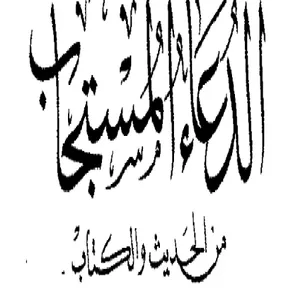 الدعاء المستجاب
من الحديث والكتاب